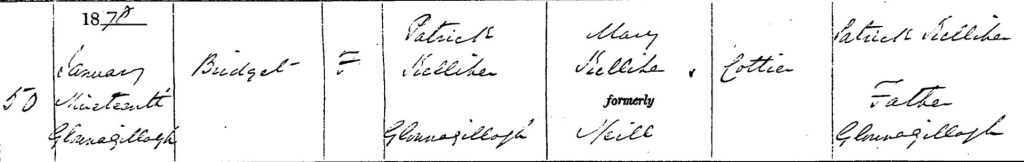 1878
50
January
Nineteenth
Glounagillagh
Bridget
F
Patrick
Kelliher
Glounagillagh
Mary
Kelliher
formerly
Neill
Cottier
Patrick Kelliher
Father
Glounagillagh